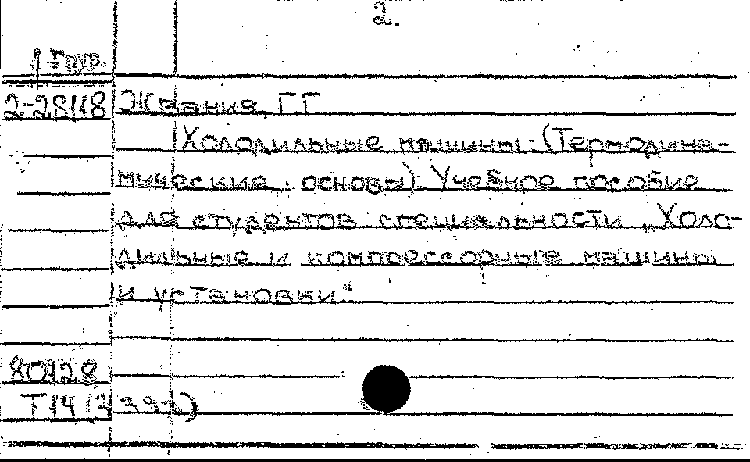 2.
Груз.
2-28118 Жвания, Г Г
Холодильные машины: (Термодина-
мические основы). Учебное пособие
для студентов специальности „Холо-
дильные и компрессорные машины
и установки“
80428
Т 14